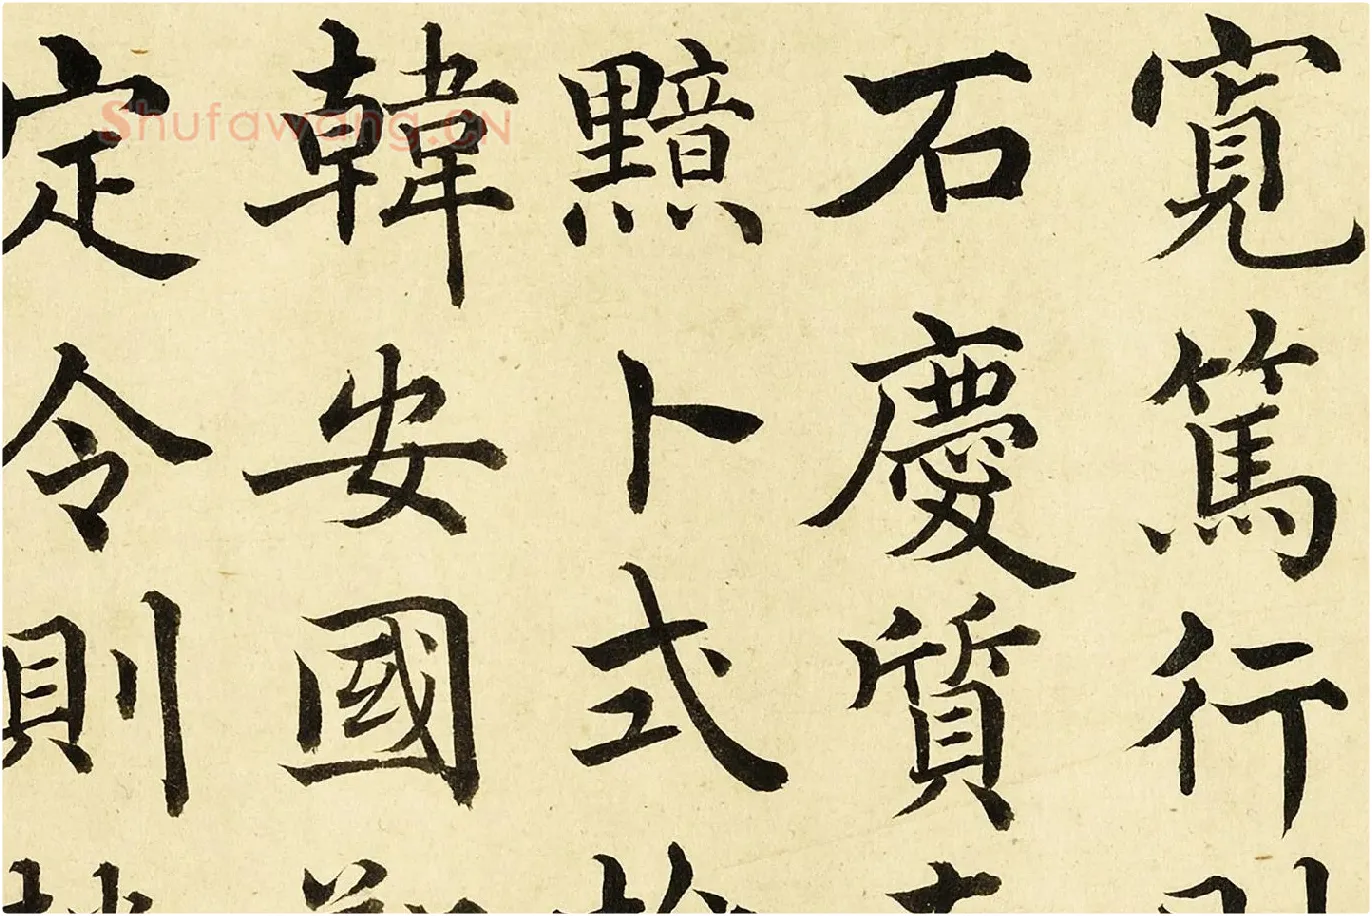 寬篤行
石慶質
黯卜式
韓安國
定令則
Shufawang.CN